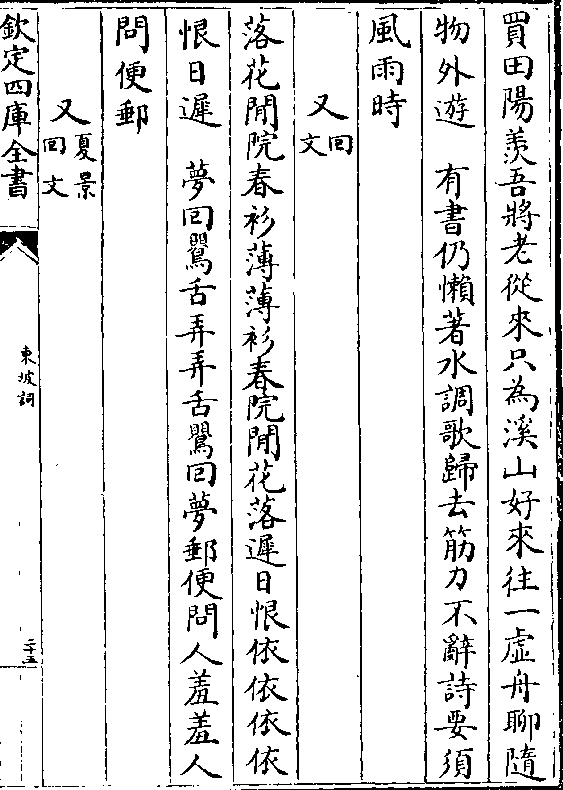 買田陽羨吾將老從來只為溪山好來往一虛舟聊隨
物外遊　有書仍懶著水調歌歸去筋力不辭詩要須
風雨時
又回文
落花閒院春衫薄薄衫春院閒花落遲日恨依依依依
恨日遲　夢回鸎舌弄弄舌鸎回夢郵便問人羞羞人
問便郵
又夏景回文
欽定四庫全書
東坡詞
二十五